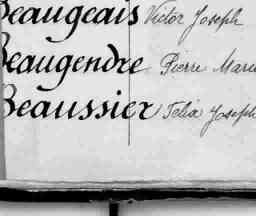 Beaugeais Victor Joseph
Beaugendre Pierre Marie
Beaussier Felix Joseph